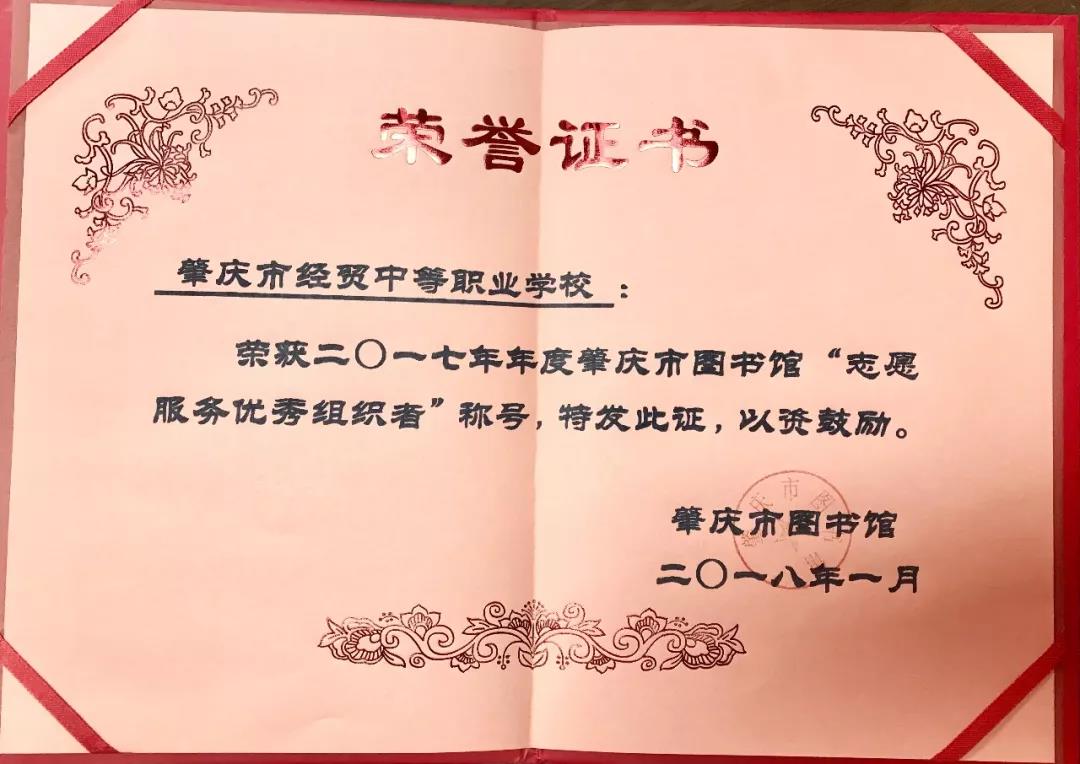 荣誉证书
肇庆市经贸中等职业学校：
荣获二〇一七年年度肇庆市图书馆“志愿
服务优秀组织者”称号，特发此证，以资鼓励。
肇庆市图书馆
二〇一八年一月